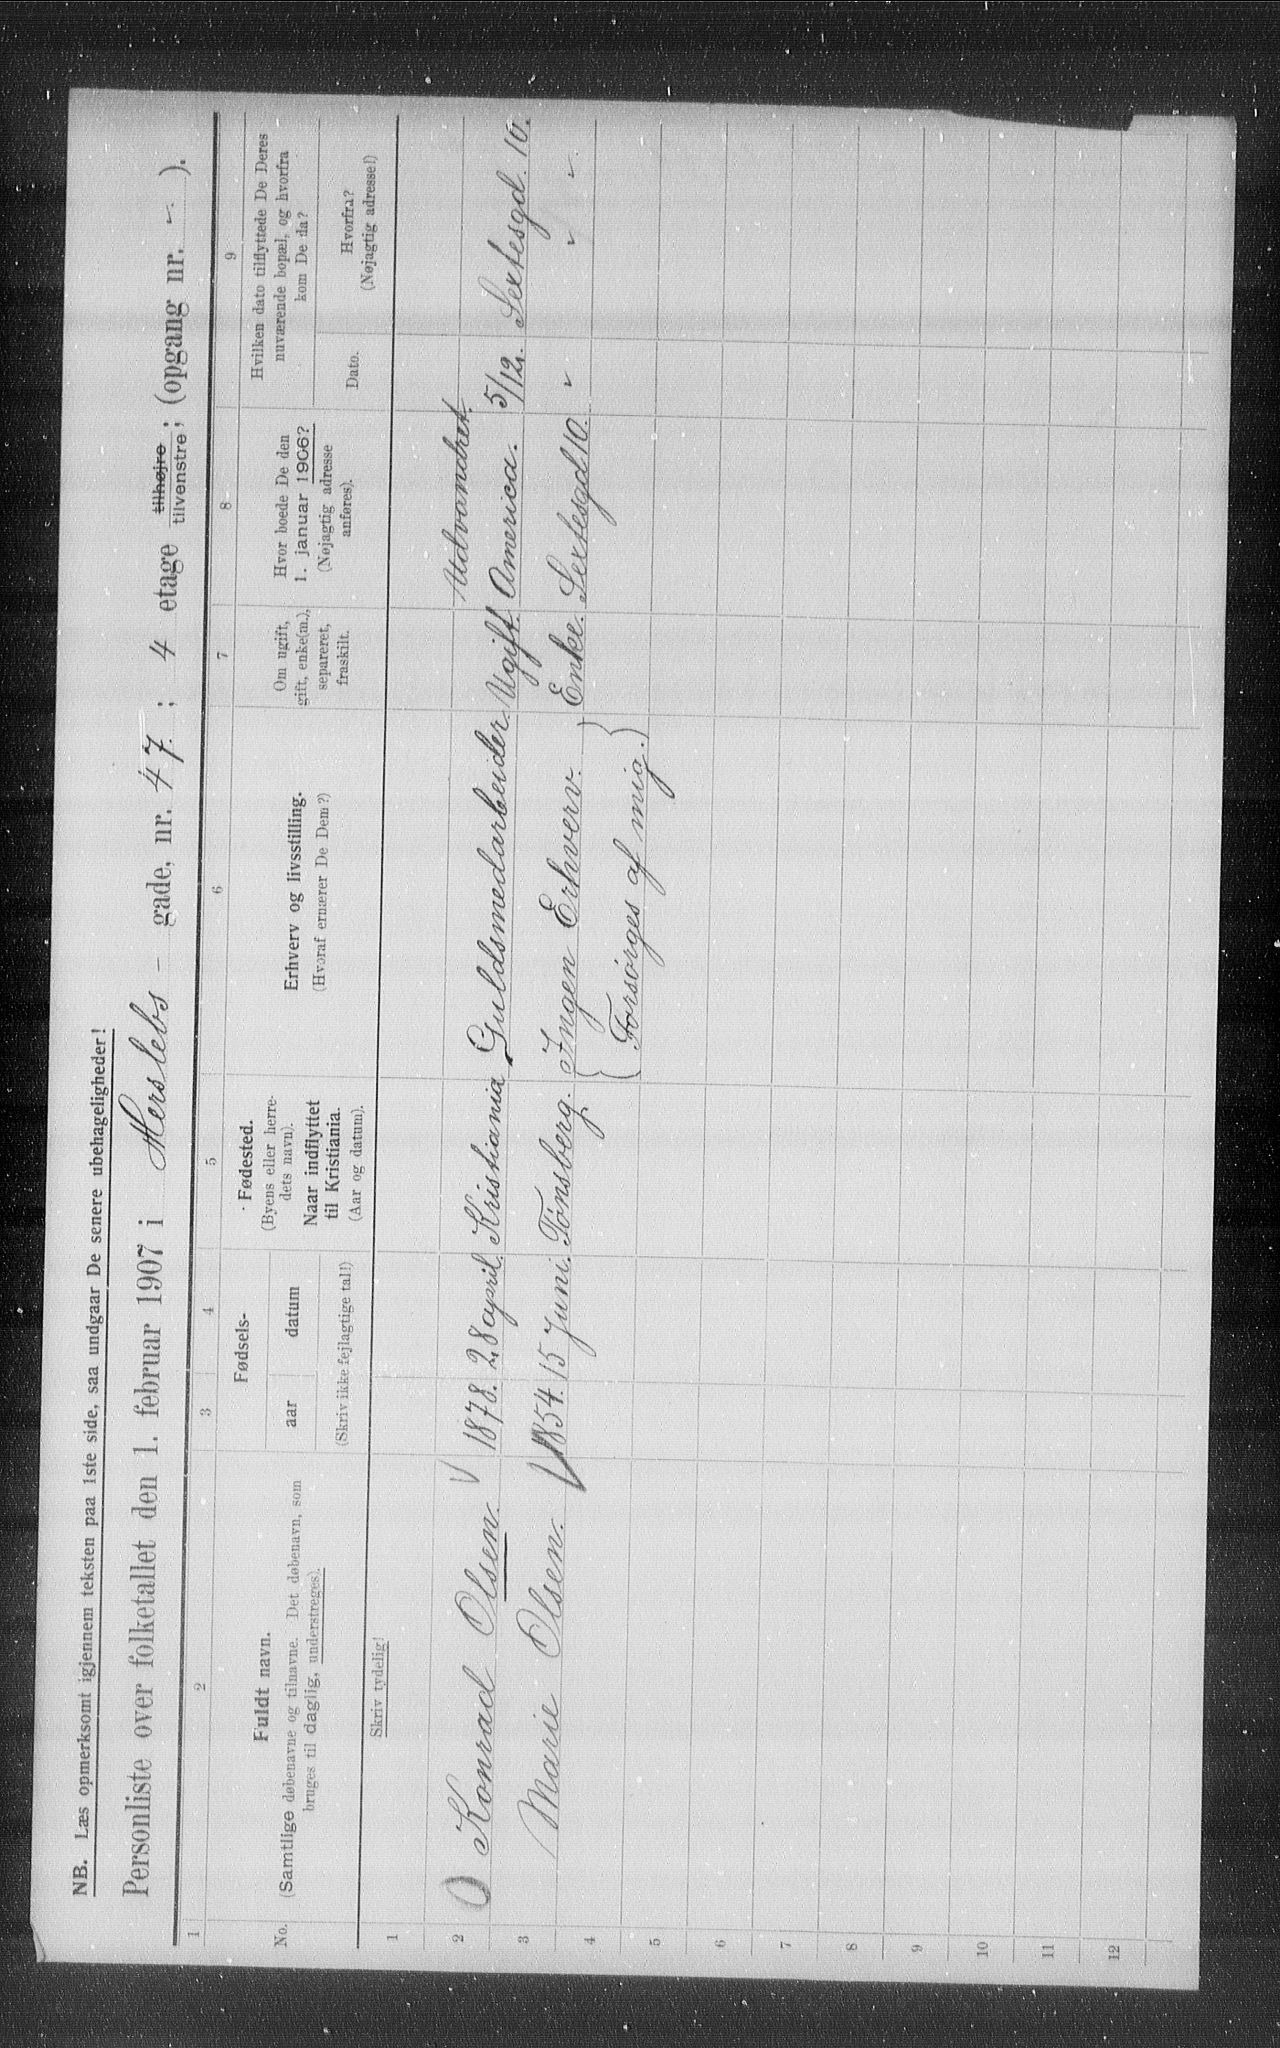 NB. Læs opmerksomt igjennem teksten paa 1ste side, saa undgaar De senere ubehageligheder!
Personliste over folketallet den 1. februar 1907 i Herslebs - gade, nr. 47 ; 4 etage tilhøjre tilvenstre ; (opgang nr. ).
1 2 3 4 5 6 7 8 9
No.
Fuldt navn.
(Samtlige døbenavne og tilnavne. Det døbenavn, som
bruges til daglig, understreges).
Fødsels-
aar datum
(Skriv ikke fejlagtige tal!)
Fødested.
(Byens eller herre-
dets navn).
Naar indflyttet
til Kristiania.
(Aar og datum).
Erhverv og livsstilling.
(Hvoraf ernærer De Dem?)
Om ugift,
gift, enke(m.),
separeret,
fraskilt.
Hvor boede De den
1. januar 1906?
(Nøjagtig adresse
anføres).
Hvilken dato tilflyttede De Deres
nuværende bopæl, og hvorfra
kom De da?
Dato.
Hvorfra?
(Nøjagtig adresse!)
Skriv tydelig!
1
2 Konrad Olsen. 1878. 28 april. Kristiania Guldsmedarbeider. Ugift. Udvandret. America. 5/12. Sextesgd. 10.
3 Marie Olsen. 1854. 15 Juni. Tønsberg. Ingen Erhverv. Enke. Sextesgd 10.
4 (Forsørges af mig.)
5
6
7
8
9
10
11
12